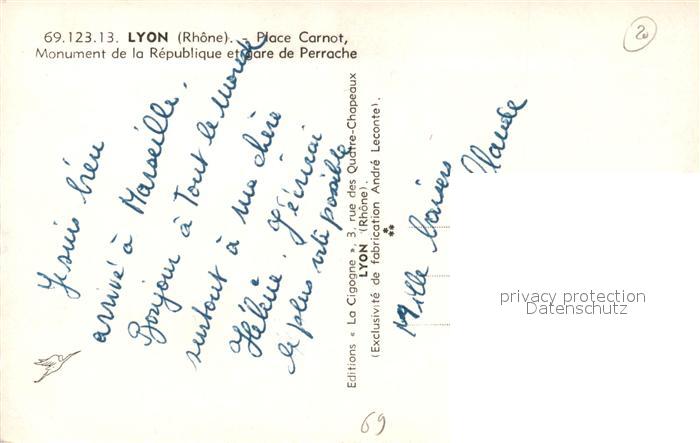 69.123.13. LYON (Rhône). - Place Carnot,
Monument de la République et gare de Perrache
20
Je suis bien
arrivé à Marseille.
Bonjour à Tout le monde
surtout à ma chère
Hélène. J'écrirai
le plus vite possible
Mille baisers
Claude
Editions « La Cigogne », 3, rue des Quatre-Chapeaux
LYON (Rhône).
(Exclusivité de fabrication André Leconte).
**
privacy protection
Datenschutz
69